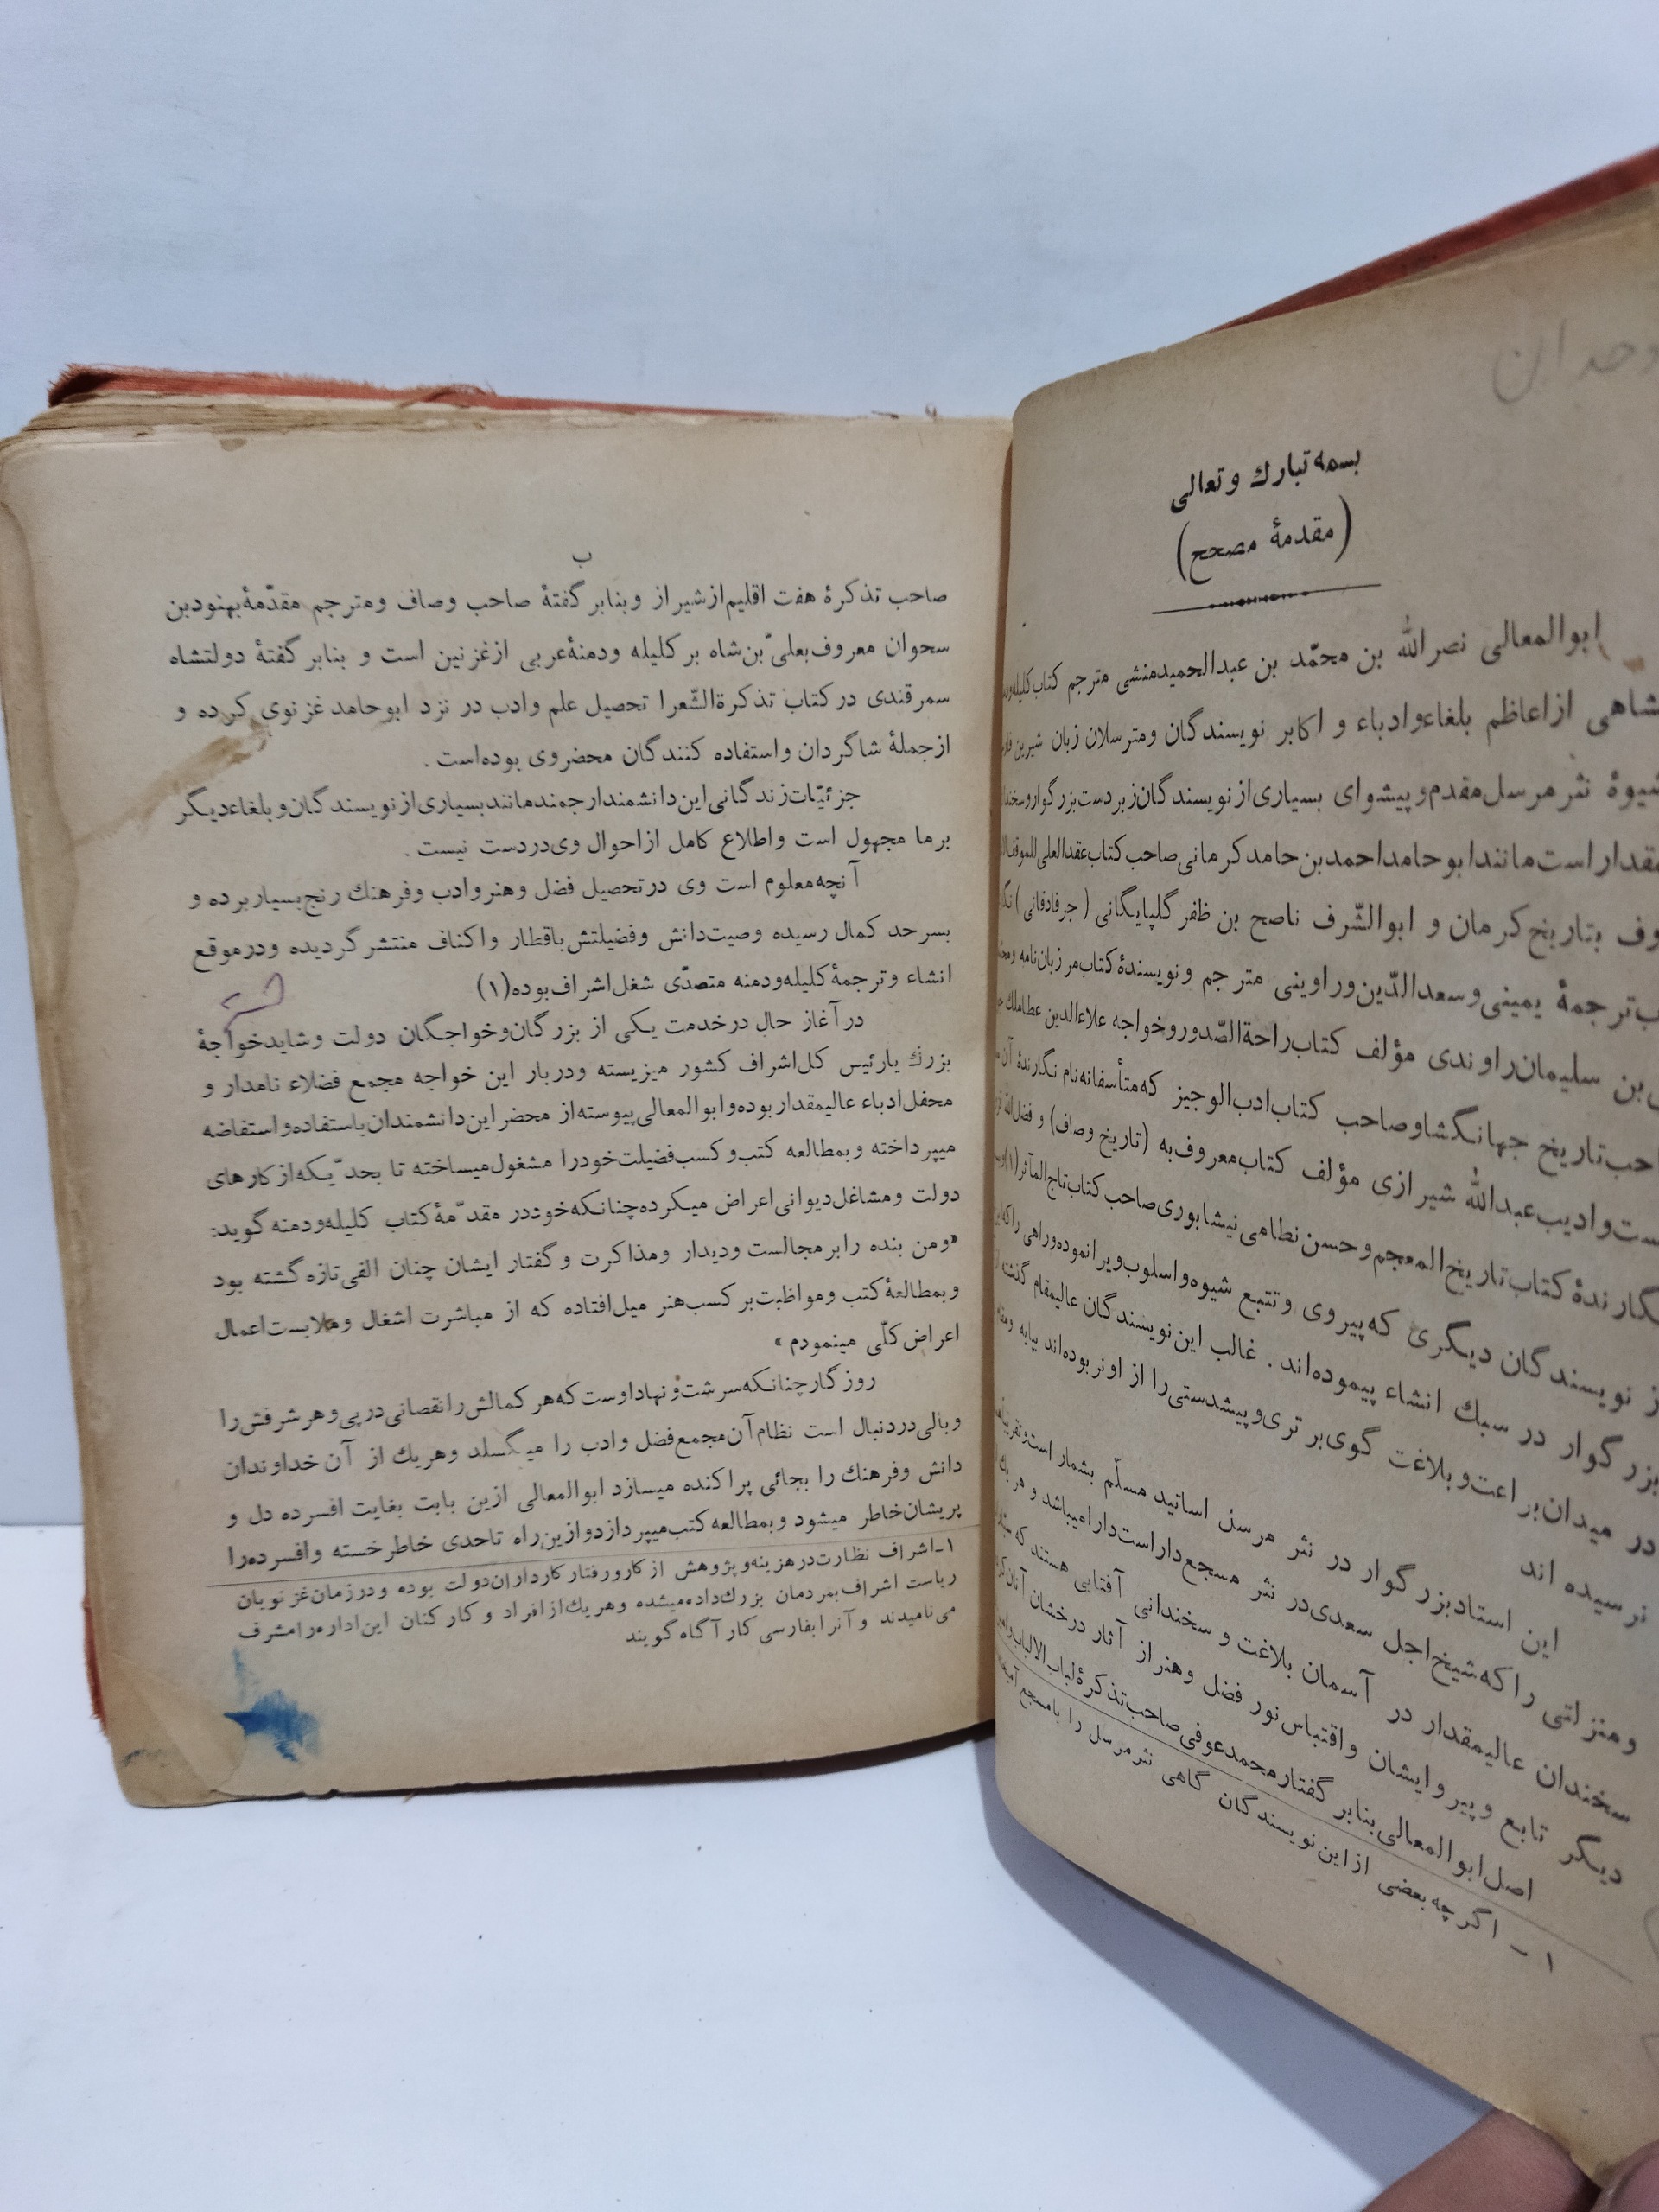 وحدان
بسمه تبارك وتعالی
(مقدمهٔ مصحح)
ابوالمعالی نصرالله بن محمّد بن عبدالحمیدمنشی مترجم کتاب
شاهی ازاعاظم بلغاءوادباء و اکابر نویسندگان ومترسلان زبان شیرین
شیوهٔ نثرمرسل مقدم وپیشوای بسیاری از نویسندگان زبردست بزرگوار
است مانندابوحامداحمدبن حامدکرمانی صاحب کتاب عقدالعلی
بتاریخ کرمان و ابوالشّرف ناصح بن ظفر گلپایگانی (جرفادقانی)
ترجمهٔ یمینی وسعدالدّین وراوینی مترجم ونویسندهٔ کتاب مرزبان نامه
بن سلیمان راوندی مؤلف کتاب راحةالصّدوروخواجه علاءالدین عطاملك
تاریخ جهانگشاوصاحب کتاب ادب الوجیز که متأسفانه نام نگارندهٔ
وادیب عبدالله شیرازی مؤلف کتاب معروف به (تاریخ وصاف) و
کتاب تاریخ المعجم وحسن نظامی نیشابوری صاحب کتاب تاج المآثر(۱)
نویسندگان دیگری که پیروی وتتبع شیوه واسلوب ویرانموده وراهی را
بزرگوار در سبك انشاء پیموده‌اند . غالب این نویسندگان عالیمقام
در میدان براعت وبلاغت گوی برتری وپیشدستی را از او نربوده‌اند
نرسیده اند
این استادبزرگوار در نثر مرسل اساتید مسلّم بشمار است
ومنزلتی را که شیخ اجل سعدی در نثر مسجع داراست دارامیباشد و هر
سخندان عالیمقدار در آسمان بلاغت و سخندانی آفتابی هستند که
دیگر تابع وپیروایشان واقتباس نور فضل وهنر از آثار درخشان آنان
اصل ابوالمعالی بنابر گفتار محمدعوفی صاحب تذکرهٔ لباب الالباب
۱ - اگر چه بعضی ازاین نویسندگان گاهی نثر مرسل را بامسجع
ب
صاحب تذکرهٔ هفت اقلیم از شیراز وبنابر گفتهٔ صاحب وصاف ومترجم مقدّمهٔ بهنودبن
سحوان معروف بعلیّ بن شاه بر کلیله ودمنهٔ عربی از غزنین است و بنابر گفتهٔ دولتشاه
سمرقندی در کتاب تذکرةالشّعرا تحصیل علم وادب در نزد ابوحامد غزنوی کرده و
ازجملهٔ شاگردان واستفاده کنندگان محضروی بوده‌است .
جزئیّات زندگانی این دانشمندارجمند مانند بسیاری از نویسندگان وبلغاءدیگر
برما مجهول است واطلاع کامل ازاحوال وی دردست نیست .
آنچه معلوم است وی درتحصیل فضل وهنر وادب وفرهنك رنج بسیار برده و
بسرحد کمال رسیده وصیت دانش وفضیلتش باقطار واکناف منتشر گردیده ودرموقع
انشاء وترجمهٔ کلیله ودمنه متصدّی شغل اشراف بوده(۱)
در آغاز حال درخدمت یکی از بزرگان وخواجگان دولت وشایدخواجهٔ
بزرك یارئیس کل اشراف کشور میزیسته ودربار این خواجه مجمع فضلاء نامدار و
محفل ادباء عالیمقدار بوده وابوالمعالی پیوسته از محضر این دانشمندان باستفاده واستفاضه
میپرداخته وبمطالعه کتب وکسب فضیلت خودرا مشغول میساخته تا بحدّیکه از کارهای
دولت ومشاغل دیوانی اعراض میکرده چنانکه خوددر مقدّمهٔ کتاب کلیله ودمنه گوید:
«ومن بنده را بر مجالست ودیدار ومذاکرت و گفتار ایشان چنان الفی تازه گشته بود
وبمطالعهٔ کتب ومواظبت بر کسب هنر میل افتاده که از مباشرت اشغال وملابست اعمال
اعراض کلّی مینمودم »
روزگار چنانکه سرشت ونهاد اوست که هر کمالش رانقصانی درپی وهر شرفش را
وبالی دردنبال است نظام آن مجمع فضل وادب را میگسلد وهریك از آن خداوندان
دانش وفرهنك را بجائی پراکنده میسازد ابوالمعالی ازین بابت بغایت افسرده دل و
پریشان خاطر میشود وبمطالعه کتب میپردازد وازین راه تاحدی خاطر خسته وافسرده را
۱-اشراف نظارت درهزینه وپژوهش از کارورفتار کارداران دولت بوده ودرزمان غزنویان
ریاست اشراف بمردمان بزرك داده میشده وهریك از افراد و کارکنان این اداره رامشرف
می‌نامیدند و آنرا بفارسی کار آگاه گویند